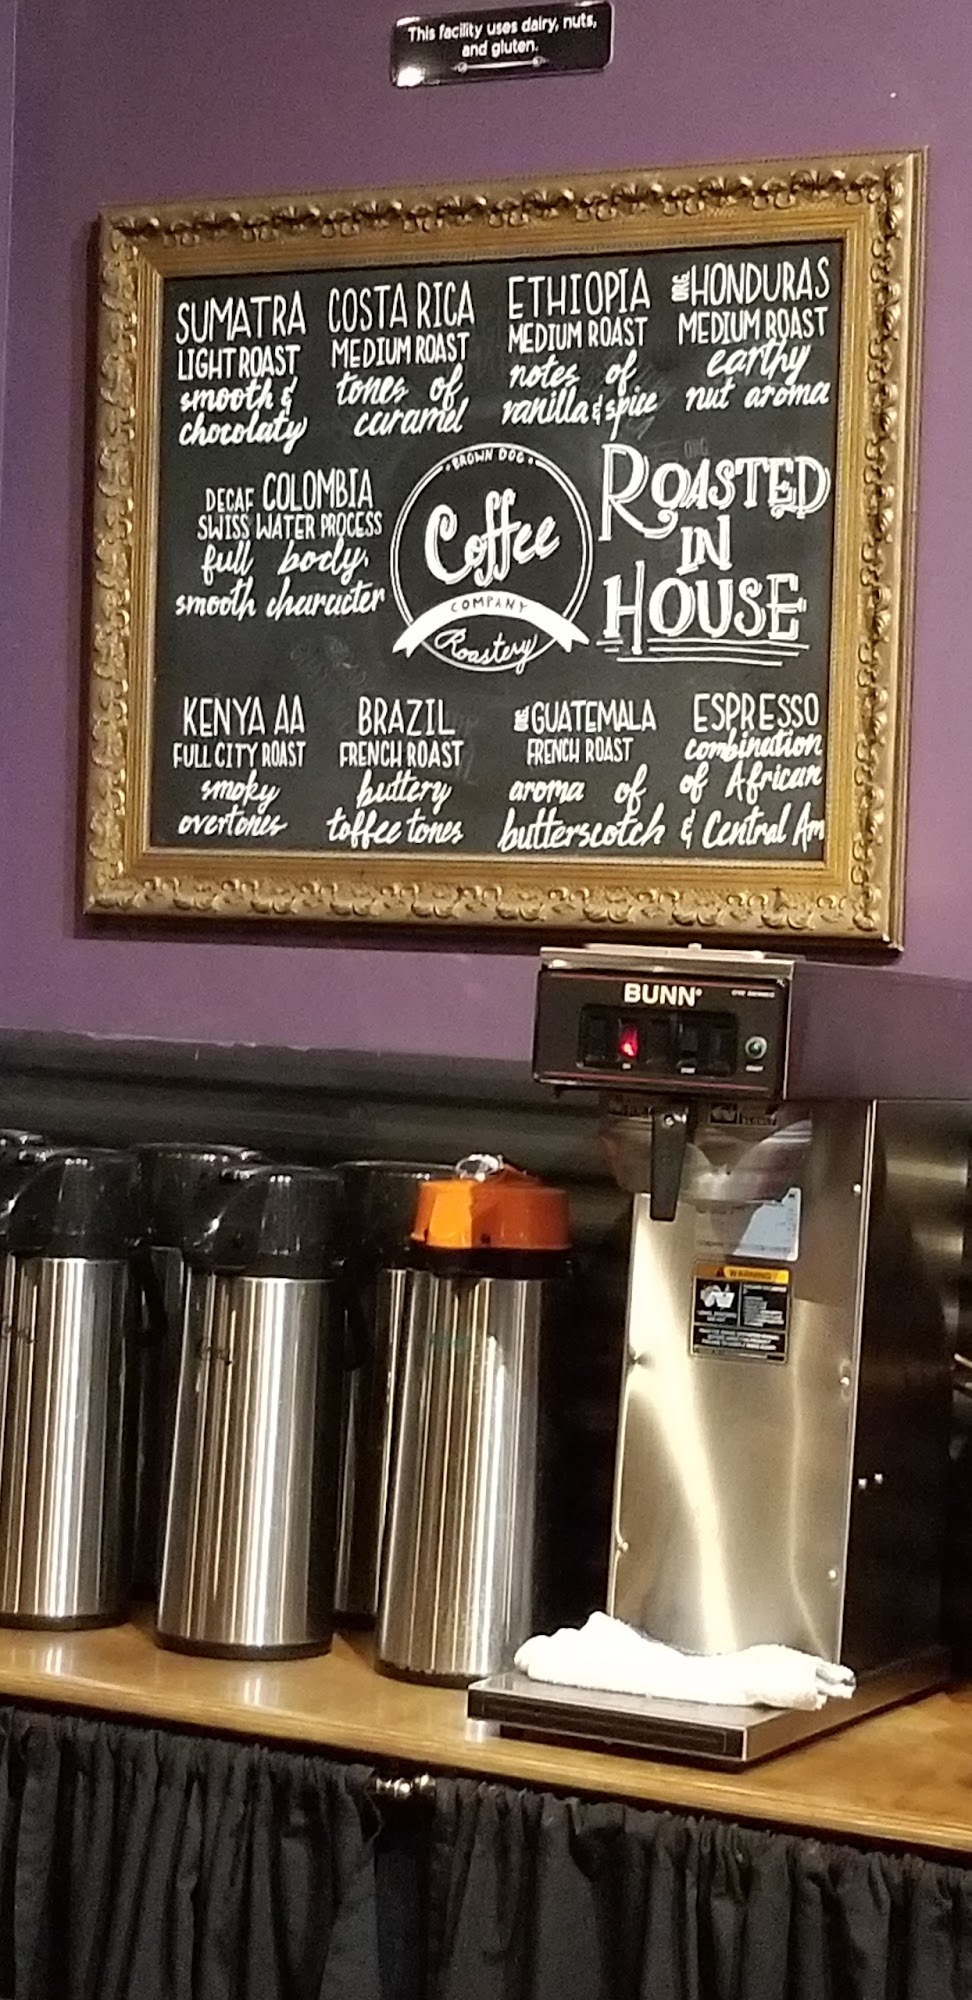 This facility uses dairy, nuts,
and gluten.
SUMATRA
LIGHT ROAST
smooth &
chocolaty
COSTA RICA
MEDIUM ROAST
tones of
caramel
ETHIOPIA
MEDIUM ROAST
notes of
vanilla & spice
ORG HONDURAS
MEDIUM ROAST
earthy
nut aroma
DECAF COLOMBIA
SWISS WATER PROCESS
full body,
smooth character
BROWN DOG
Coffee
COMPANY
Roastery
ROASTED
IN
HOUSE
KENYA AA
FULL CITY ROAST
smoky
overtones
BRAZIL
FRENCH ROAST
buttery
toffee tones
ORG GUATEMALA
FRENCH ROAST
aroma of
butterscotch
ESPRESSO
combination
of African
& Central Am
BUNN
WARNING